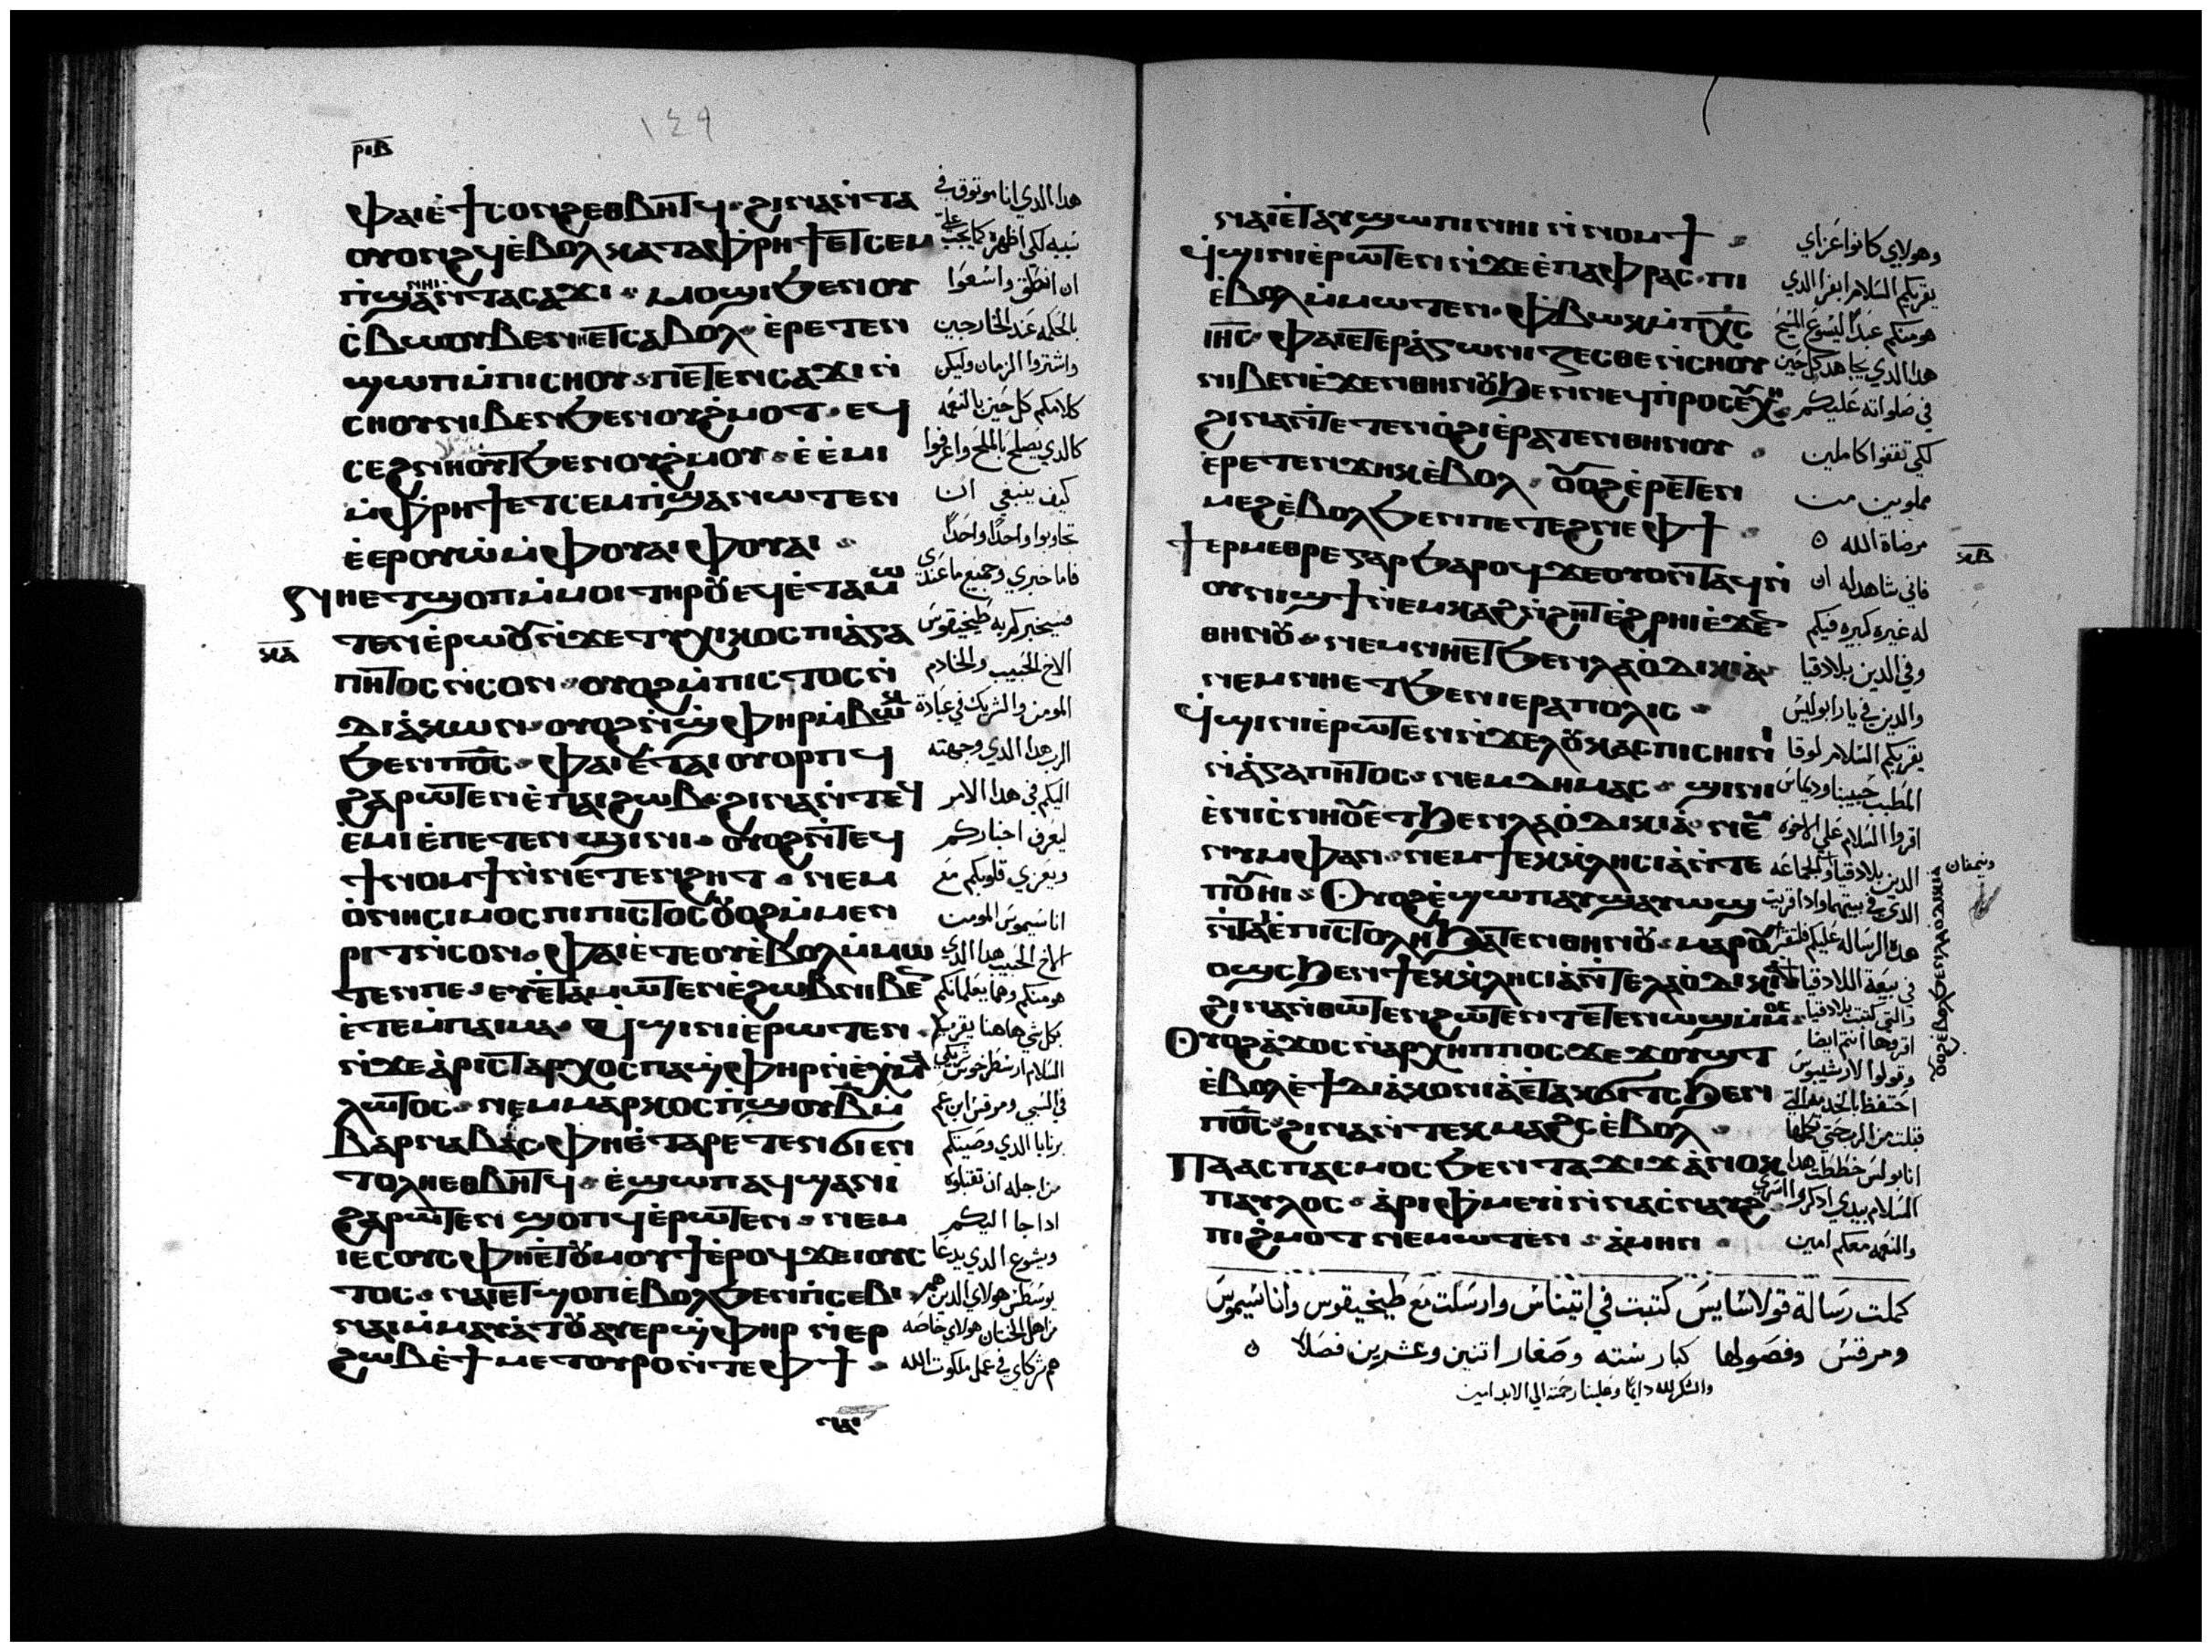 ⲣⲓⲃ
١٤٩
ⲫⲁⲓ ⲉ̇ϯⲥⲟⲛϩ ⲉⲑⲃⲏⲧϥ ϩⲓⲛⲁ ⲛ̇ⲧⲁ
ⲟⲩⲟⲛϩϥ ⲉ̇ⲃⲟⲗ ⲕⲁⲧⲁ ⲫⲣⲏϯ ⲉⲧⲥⲉⲙ
ⲡ̇ϣⲁ ⲛⲏⲓ ⲛ̇ⲧⲁⲥⲁϫⲓ ⲙⲟϣⲓ ϧⲉⲛ ⲟⲩ
ⲥⲃⲱ ⲟⲩⲃⲉ ⲛⲏⲉⲧⲥⲁⲃⲟⲗ ⲉ̇ⲣⲉⲧⲉⲛ
ϣⲱⲡ ⲙ̇ⲡⲓⲥⲏⲟⲩ ⲡⲉⲧⲉⲛⲥⲁϫⲓ ⲛ̇
ⲥⲏⲟⲩ ⲛⲓⲃⲉⲛ ϧⲉⲛ ⲟⲩϩⲙⲟⲧ ⲉϥ
ⲥⲉϩⲛⲏⲟⲩⲧ ϧⲉⲛ ⲟⲩϩⲙⲟⲩ ⲉ̇ⲉ̇ⲙⲓ
ⲙ̇ⲫⲣⲏϯ ⲉⲧⲥⲉⲙⲡ̇ϣⲁ ⲛⲱⲧⲉⲛ
ⲉ̇ⲉⲣⲟⲩⲱ̇ ⲙ̇ⲫⲟⲩⲁⲓ ⲫⲟⲩⲁⲓ
ⲛⲏⲉⲧϣⲟⲡ ⲙ̇ⲙⲟⲓ ⲧⲏⲣⲟⲩ ⲉϥⲉ̇ⲧⲁⲙⲱ
ⲕⲁ
ⲧⲉⲛ ⲉ̇ⲣⲱⲟⲩ ⲛ̇ϫⲉ ⲧⲩⲭⲓⲕⲟⲥ ⲡⲓⲁ̇ⲅⲁ
ⲡⲏⲧⲟⲥ ⲛ̇ⲥⲟⲛ ⲟⲩⲟϩ ⲙ̇ⲡⲓⲥⲧⲟⲥ ⲛ̇
ⲇⲓⲁ̇ⲕⲱⲛ ⲟⲩⲟϩ ⲛ̇ϣ̇ⲫⲏⲣ ⲙ̇ⲃⲱⲕ
ϧⲉⲛ ⲡ⳪ ⲫⲁⲓ ⲉ̇ⲧⲁⲓⲟⲩⲟⲣⲡϥ
ϩⲁⲣⲱⲧⲉⲛ ⲉ̇ⲡⲁⲓϩⲱⲃ ϩⲓⲛⲁ ⲛ̇ⲧⲉϥ
ⲉ̇ⲙⲓ ⲉ̇ⲡⲉⲧⲉⲛϣⲓⲛⲓ ⲟⲩⲟϩ ⲛ̇ⲧⲉϥ
ϯⲛⲟⲙϯ ⲛ̇ⲛⲉⲧⲉⲛϩⲏⲧ ⲛⲉⲙ
ⲟ̇ⲛⲏⲥⲓⲙⲟⲥ ⲡⲓⲡⲓⲥⲧⲟⲥ ⲟⲩⲟϩ ⲙ̇ⲙⲉⲛ
ⲣⲓⲧ ⲛ̇ⲥⲟⲛ ⲫⲁⲓ ⲉ̇ⲧⲉ ⲟⲩⲉ̇ⲃⲟⲗ ⲙ̇ⲙⲱ
ⲧⲉⲛ ⲡⲉ ⲉⲩⲉ̇ⲧⲁⲙⲱⲧⲉⲛ ⲉ̇ϩⲱⲃ ⲛⲓⲃⲉⲛ
ⲉ̇ⲧⲉⲙ̇ⲡⲁⲓⲙⲁ ϥ̇ϣⲓⲛⲓ ⲉ̇ⲣⲱⲧⲉⲛ
ⲛ̇ϫⲉ ⲁ̇ⲣⲓⲥⲧⲁⲣⲭⲟⲥ ⲡⲁϣ̇ⲫⲏⲣ ⲛ̇ⲉ̇ⲭⲙⲁ
ⲗⲱⲧⲟⲥ ⲛⲉⲙ ⲙⲁⲣⲕⲟⲥ ⲡϣⲟⲩ ⲃⲛ̇
ⲃⲁⲣⲛⲁⲃⲁⲥ ⲫⲏⲉ̇ⲧⲁⲣⲉⲧⲉⲛϭⲓ ⲉⲛ
ⲧⲟⲗⲏ ⲉⲑⲃⲏⲧϥ ⲉ̇ϣⲱⲡ ⲁϥϣⲁⲛⲓ̇
ϩⲁⲣⲱⲧⲉⲛ ϣⲟⲡϥ ⲉ̇ⲣⲱⲧⲉⲛ ⲛⲉⲙ
ⲓⲉⲥⲟⲩⲥ ⲫⲏⲉ̇ⲧⲟⲩⲙⲟⲩϯ ⲉ̇ⲣⲟϥ ϫⲉ ⲓⲟⲩⲥ
ⲧⲟⲥ ⲛⲁⲓ ⲉⲧϣⲟⲡ ⲉ̇ⲃⲟⲗ ϧⲉⲛ ⲡ̇ⲥⲉⲃⲓ
ⲛⲁⲓ ⲙ̇ⲙⲁⲩⲁⲧⲟⲩ ⲁⲩⲉⲣϣ̇ⲫⲏⲣ ⲛ̇ⲉⲣ
ϩⲱⲃ ⲉ̇ϯⲙⲉⲧⲟⲩⲣⲟ ⲛ̇ⲧⲉ ⲫϯ
هدا الدي انا موتوق في
سببه لكي اظهره كما يجب علي
ان انطق واسعوا
بالحكمه عند الخارجين
واشتروا الزمان وليكن
كلامكم كل حين بالنعمه
كالدي يصلح بالملح واعرفوا
كيف ينبغي ان
تجاوبوا واحدًا واحدًا
فاما خبري وجميع ما عندي
فسيخبركم به طيخيقوس
الاخ الحبيب والخادم
المومن والشريك في عبادة
الرب هدا الدي وجهته
اليكم في هدا الامر
ليعرف اخباركم
ويعزي قلوبكم مع
اناسيموس المومن
الاخ الحبيب هدا الدي
هو منكم وهما يعلمانكم
بكل شي هاهنا يقريكم
السلام ارسطرخوس شريكي
في السبي ومرقس ابن عم
برنابا الدي وصيتكم
من اجله ان تقبلوه
ادا جا اليكم
ويشوع الدي يدعا
يوسطس هولاي الدين هم
من اهل الختان هولاي خاصه
هم شركاي في عمل ملكوت الله
ⲛⲁⲓ
ⲛⲁⲓ ⲉ̇ⲧⲁⲩϣⲱⲡⲓ ⲛⲏⲓ ⲛ̇ⲛⲟⲙϯ
ϥ̇ϣⲓⲛⲓ ⲉ̇ⲣⲱⲧⲉⲛ ⲛ̇ϫⲉ ⲉ̇ⲡⲁⲫⲣⲁⲥ ⲡⲓ
ⲉ̇ⲃⲟⲗ ⲙ̇ⲙⲱⲧⲉⲛ ⲫ̇ⲃⲱⲕ ⲙ̇ⲡⲭ̅ⲥ̅
ⲓⲏⲥ ⲫⲁⲓ ⲉⲧⲉⲣⲁ̇ⲅⲱⲛⲓⲍⲉⲥⲑⲉ ⲛ̇ⲥⲏⲟⲩ
ⲛⲓⲃⲉⲛ ⲉ̇ϫⲉⲛ ⲑⲏⲛⲟⲩ ϧⲉⲛ ⲛⲉϥⲡ̇ⲣⲟⲥⲉⲩⲭⲏ
ϩⲓⲛⲁ ⲛ̇ⲧⲉⲧⲉⲛⲟ̇ϩⲓ ⲉ̇ⲣⲁⲧⲉⲛ ⲑⲏⲛⲟⲩ
ⲉ̇ⲣⲉⲧⲉⲛϫⲏⲕ ⲉ̇ⲃⲟⲗ ⲟⲩⲟϩ ⲉ̇ⲣⲉⲧⲉⲛ
ⲙⲉϩ ⲉ̇ⲃⲟⲗ ϧⲉⲛ ⲡⲉⲧⲉϩⲛⲉ ⲫϯ
ⲕⲃ
ϯⲉⲣⲙⲉⲑⲣⲉ ⲅⲁⲣ ϧⲁⲣⲟϥ ϫⲉ ⲟⲩⲟⲛⲧⲁϥ ⲛ̇
ⲟⲩⲛⲓϣϯ ⲛ̇ⲉⲙⲕⲁϩ ⲛ̇ϩⲏⲧ ⲉ̇ϩⲣⲏⲓ ⲉ̇ϫⲉⲛ
ⲑⲏⲛⲟⲩ ⲛⲉⲙ ⲛⲏⲉⲧϧⲉⲛ ⲗⲁⲟ̇ⲇⲓⲕⲓⲁ̇
ⲛⲉⲙ ⲛⲏⲉⲧϧⲉⲛ ⲓⲉⲣⲁⲡⲟⲗⲓⲥ
ϥ̇ϣⲓⲛⲓ ⲉ̇ⲣⲱⲧⲉⲛ ⲛ̇ϫⲉ ⲗⲟⲩⲕⲁⲥ ⲡⲓⲥⲏⲓⲛⲓ
ⲛ̇ⲁ̇ⲅⲁⲡⲏⲧⲟⲥ ⲛⲉⲙ ⲇⲏⲙⲁⲥ ϣⲓⲛⲓ
ⲉ̇ⲛⲓⲥⲛⲏⲟⲩ ⲉⲧϧⲉⲛ ⲗⲁⲟ̇ⲇⲓⲕⲓⲁ̇ ⲛⲉⲙ
ⲛⲩⲙⲫⲁⲛ ⲛⲉⲙ ϯⲉⲕⲕⲗⲏⲥⲓⲁ̇ ⲛ̇ⲧⲉ
ⲡⲟⲩⲏⲓ Ⲟⲩⲟϩ ⲉ̇ϣⲱⲡ ⲁⲩϣⲁⲛⲱϣ
ⲛ̇ⲧⲁⲓⲉ̇ⲡⲓⲥⲧⲟⲗⲏ ϧⲁⲧⲉⲛ ⲑⲏⲛⲟⲩ ⲙⲁⲣⲟⲩ
ⲟϣⲥ ϧⲉⲛ ϯⲉⲕⲕⲗⲏⲥⲓⲁ̇ ⲛ̇ⲧⲉ ⲗⲁⲟ̇ⲇⲓⲕⲓⲁ
ϩⲓⲛⲁ ⲛ̇ⲑⲱⲧⲉⲛ ϩⲱⲧⲉⲛ ⲛ̇ⲧⲉⲧⲉⲛⲱϣ ⲙ̇ⲙⲟⲥ
Ⲟⲩⲟϩ ⲁ̇ϫⲟⲥ ⲛ̇ⲁⲣⲭⲏⲡⲡⲟⲥ ϫⲉ ϫⲟⲩϣⲧ
ⲉ̇ⲃⲟⲗ ⲉ̇ϯⲇⲓⲁ̇ⲕⲟⲛⲓⲁ̇ ⲉⲧⲁⲕϭⲓⲧⲥ ϧⲉⲛ
ⲡ⳪ ϩⲓⲛⲁ ⲛ̇ⲧⲉⲕⲙⲁϩⲥ ⲉ̇ⲃⲟⲗ
Ⲡⲁⲁⲥⲡⲁⲥⲙⲟⲥ ϧⲉⲛ ⲧⲁϫⲓϫ ⲁ̇ⲛⲟⲕ
ⲡⲁⲩⲗⲟⲥ ⲁ̇ⲣⲓⲫⲙⲉⲩⲓ̇ ⲛ̇ⲛⲁⲥⲛⲁⲩϩ
ⲡⲓϩⲙⲟⲧ ⲛⲉⲙⲱⲧⲉⲛ ⲁ̇ⲙⲏⲛ
وهولاي كانوا عزاي
يقريكم السلام ابفرا الدي
هو منكم عبدًا ليسوع المسيح
هدا الدي يجاهد كل حين
في صلواته عليكم
لكي تقفوا كاملين
مملوين من
مرضاة الله
فاني شاهد له ان
له غيره كبيره فيكم
وفي الدين بلادقيا
والدين في يارابوليس
يقريكم السلام لوقا
المطبب حبيبنا وديماس
اقروا السلام علي الاخوه
الدين بلادقيا والجماعه
ونيمفان
الدي في بيتهما وادا قريت
هده الرساله عليكم فلتقرا
في بيعة اللادقيا
والتي كتبت بلادقيا
اقروها انتم ايضا
وقولوا لارشيبوس
احتفظ بالخدمه التي
قبلت من الرب حتي تكملها
انا بولس خططت هدا
السلام بيدي ادكروا اسري
والنعمه معكم امين
ⲟⲩⲟϩ ⲉ̇ⲃⲟⲗ ϧⲉⲛ ⲗⲁⲟⲇⲓⲕⲓⲁ
كملت رسالة قولاسايس كتبت في اتيناس وارسلت مع طيخيقوس واناسيموس
ومرقس وفصولها كبار سته وصغار اتنين وعشرين فصلاً
والشكر لله دايمًا وعلينا رحمته الي الابد امين